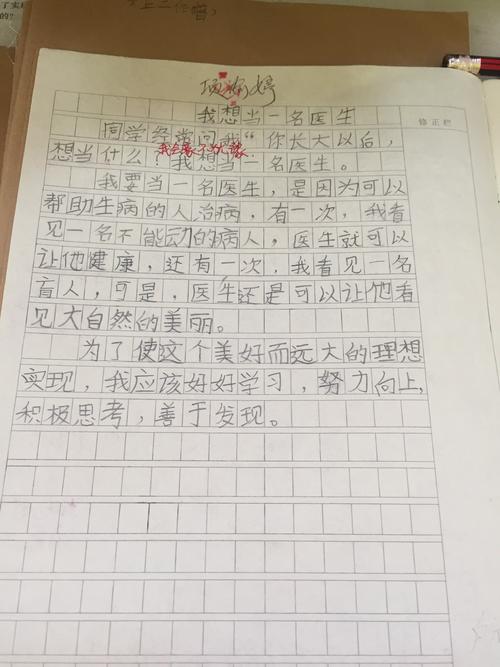 了实
的?
上工作啦)
婷
我想当一名医生
修正栏
同学经常问我“你长大以后,
想当什么?我想当一名医生。
我会毫不犹豫
我要当一名医生,是因为可以
帮助生病的人治病,有一次,我看
见一名不能动的病人,医生就可以
让他健康,还有一次,我看见一名
盲人,可是,医生还是可以让他看
见大自然的美丽。
为了使这个美好而远大的理想
实现,我应该好好学习,努力向上,
积极思考,善于发现。